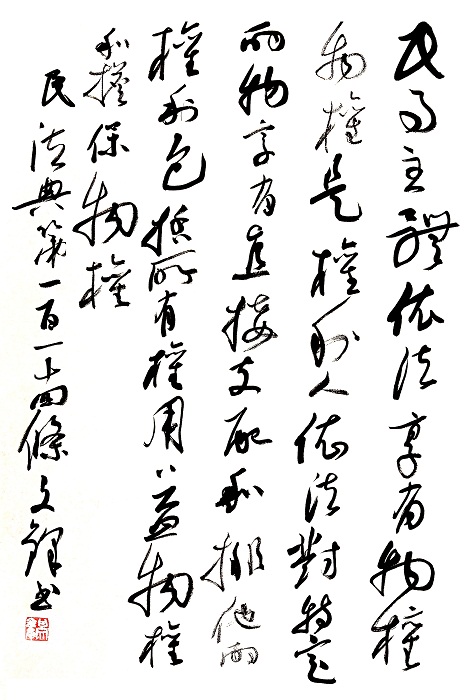 民事主體依法享有物權
物權是權利人依法對特定
的物享有直接支配和排他的
權利包括所有權用益物權
和擔保物權
民法典第一百一十四條 文書